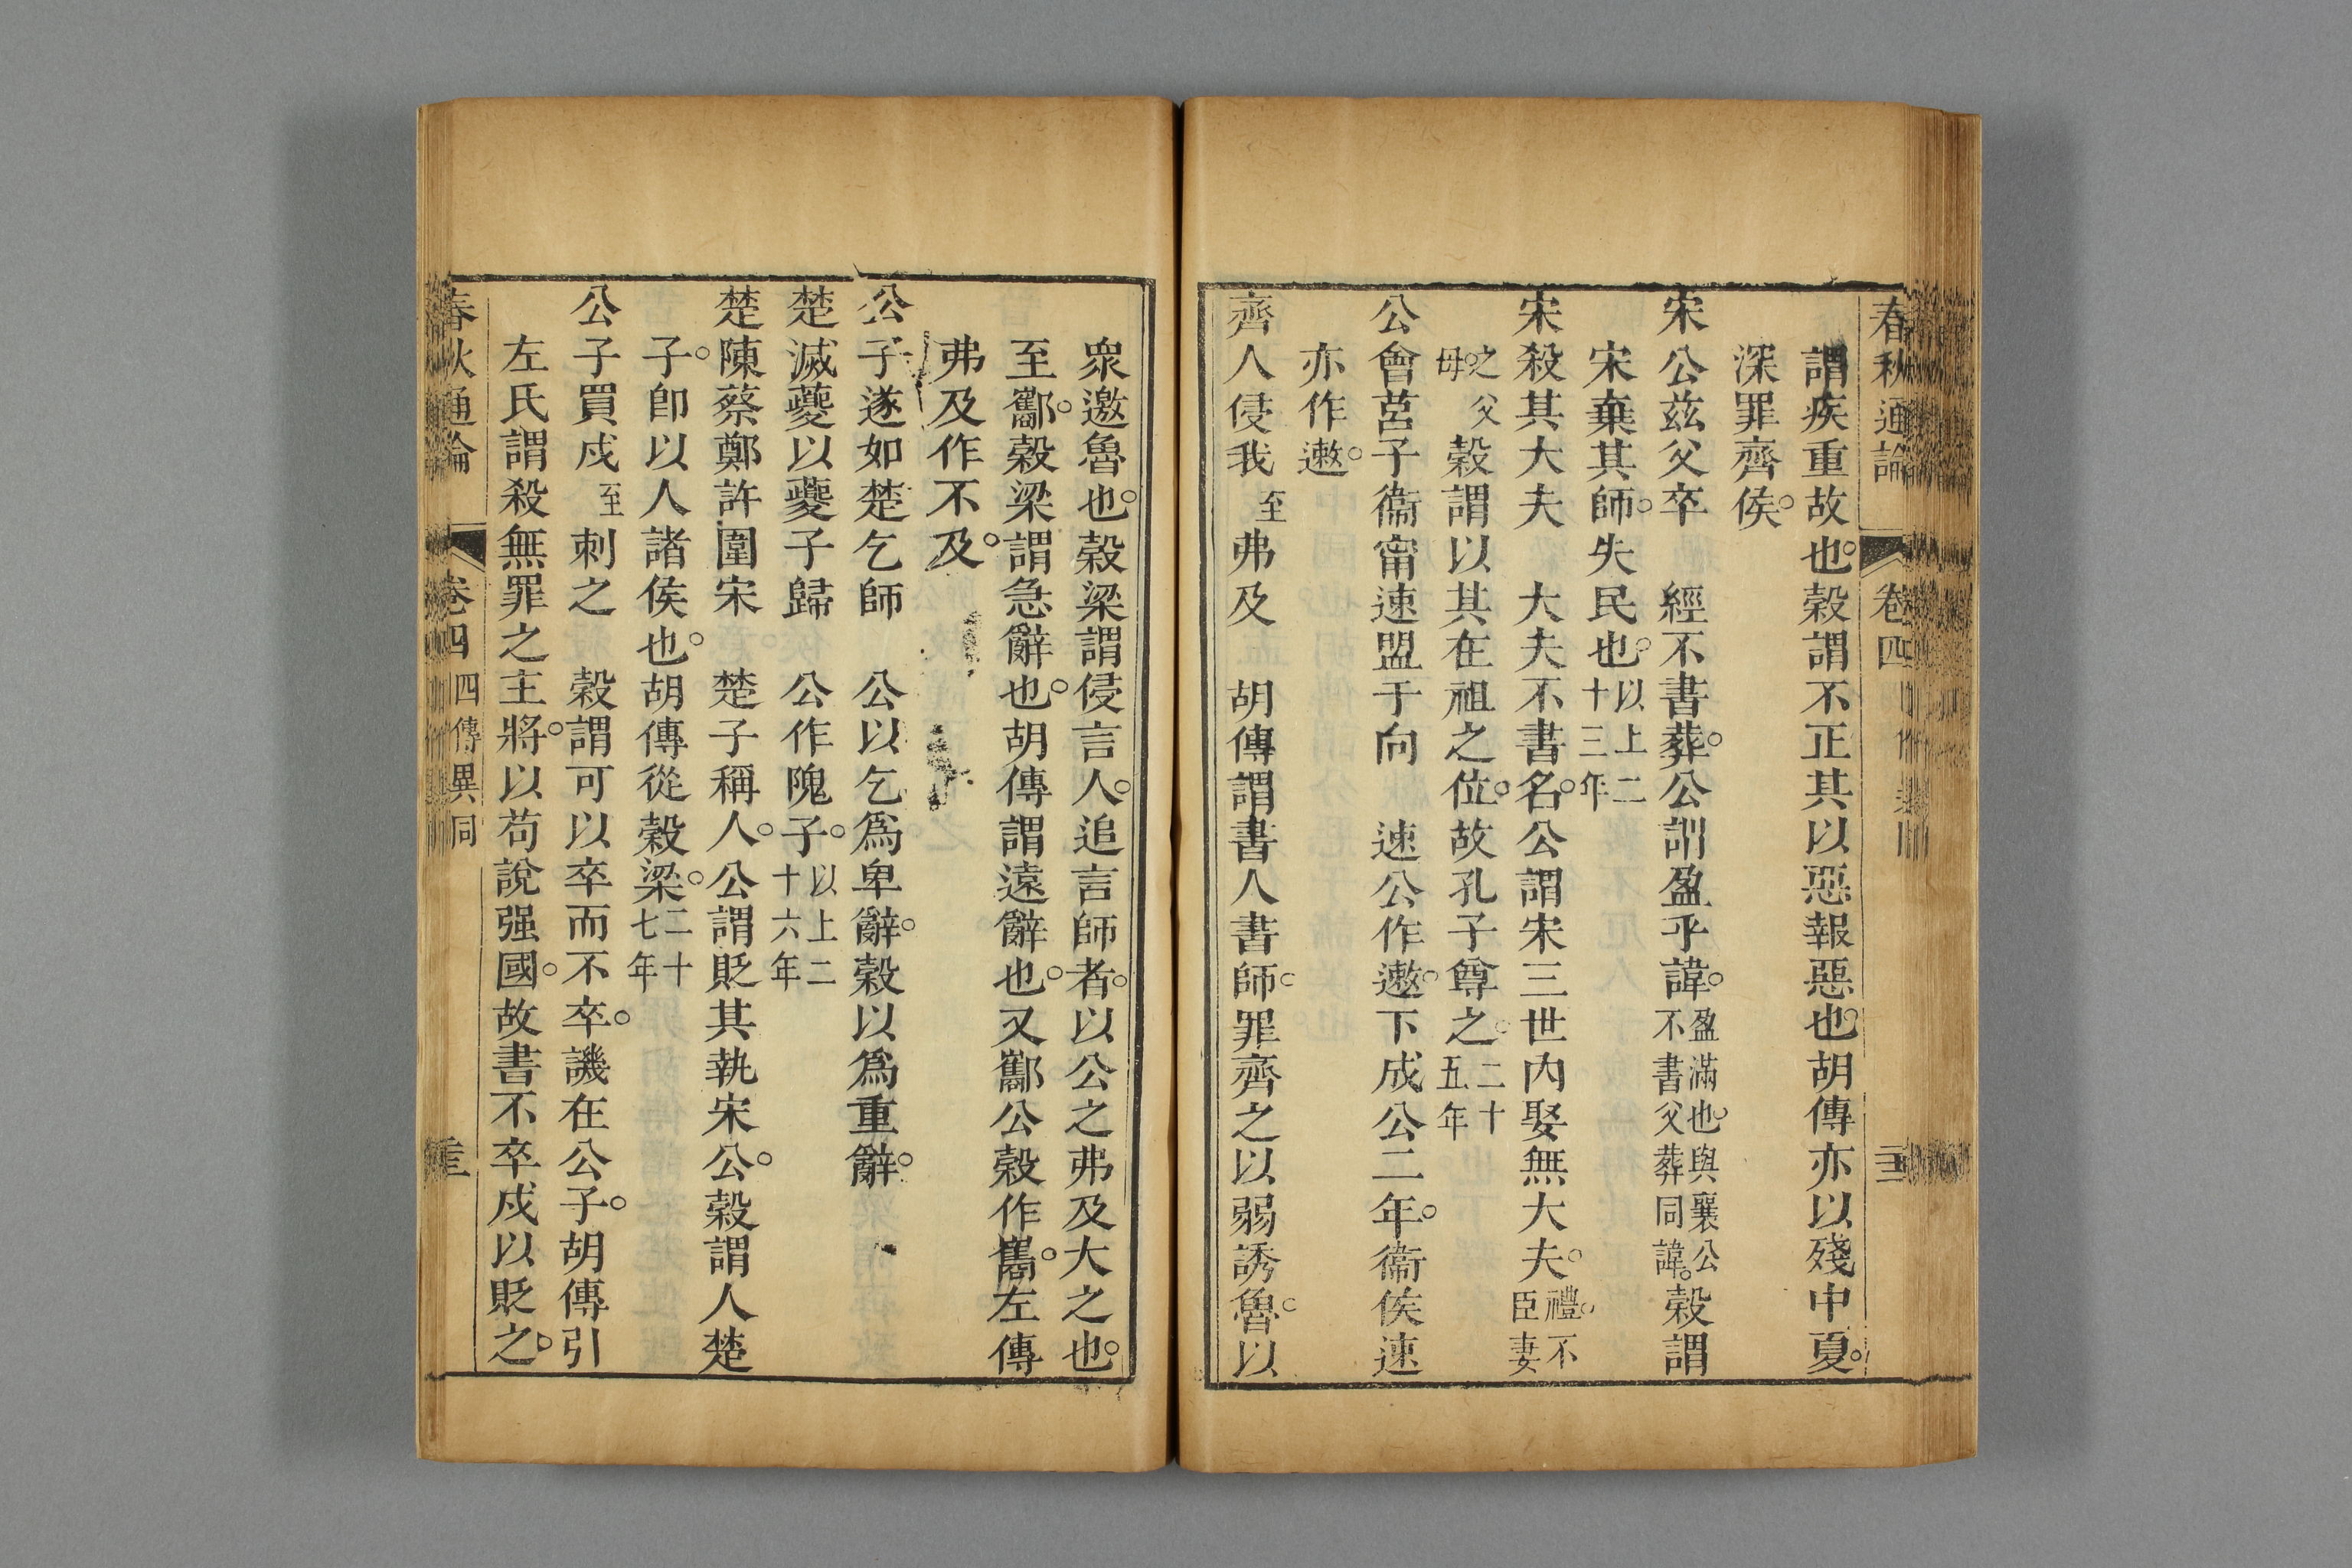 春秋通論 卷四
謂疾重故也。穀謂不正其以惡報惡也。胡傳亦以殘中夏。
深罪齊侯。
宋公茲父卒 經不書葬。公謂盈乎諱。盈滿也。與襄公不書父葬同諱。穀謂
宋棄其師。失民也。以上二十三年
宋殺其大夫 大夫不書名。公謂宋三世內娶無大夫。禮。不臣妻
之父母。穀謂以其在祖之位。故孔子尊之。二十五年
公會莒子衞甯速盟于向 速公作遬。下成公二年。衞侯速
亦作遬。
齊人侵我至弗及 胡傳謂書人書師。罪齊之以弱誘魯。以
衆邀魯也。穀梁謂侵言人。追言師者。以公之弗及大之也。
至酅。穀梁謂急辭也。胡傳謂遠辭也。又酅公穀作巂。左傳
弗及作不及。
公子遂如楚乞師 公以乞爲卑辭。穀以爲重辭。
楚滅夔以夔子歸 公作隗子。以上二十六年
楚陳蔡鄭許圍宋 楚子稱人。公謂貶其執宋公。穀謂人楚
子。卽以人諸侯也。胡傳從穀梁。二十七年
公子買戍至刺之 穀謂可以卒而不卒。譏在公子。胡傳引
左氏謂殺無罪之主將。以苟說强國。故書不卒戍以貶之。
春秋通論 卷四 四傳異同